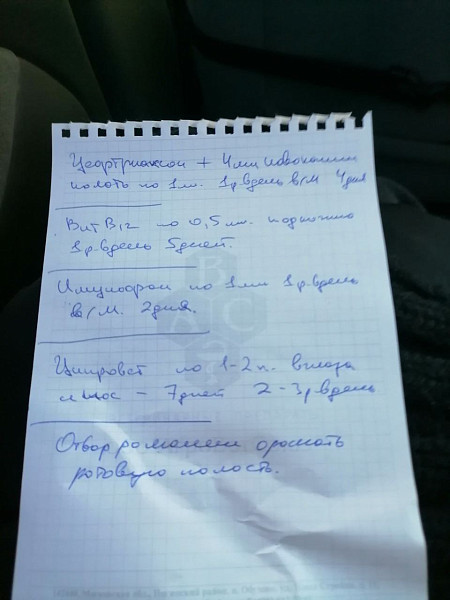 Цефтриаксон + 4мл новокаина
колоть по 1мл. 1р.в день в/м 4дня
Вит B12 по 0,5мл. подкожно
1р.в день 5дней.
Имунофан по 1мл 1р.в день
в/м. 2дня.
Ципровет по 1-2к. в глаза
и нос - 7дней 2-3р.в день
Отвар ромашки орошать
ротовую полость.